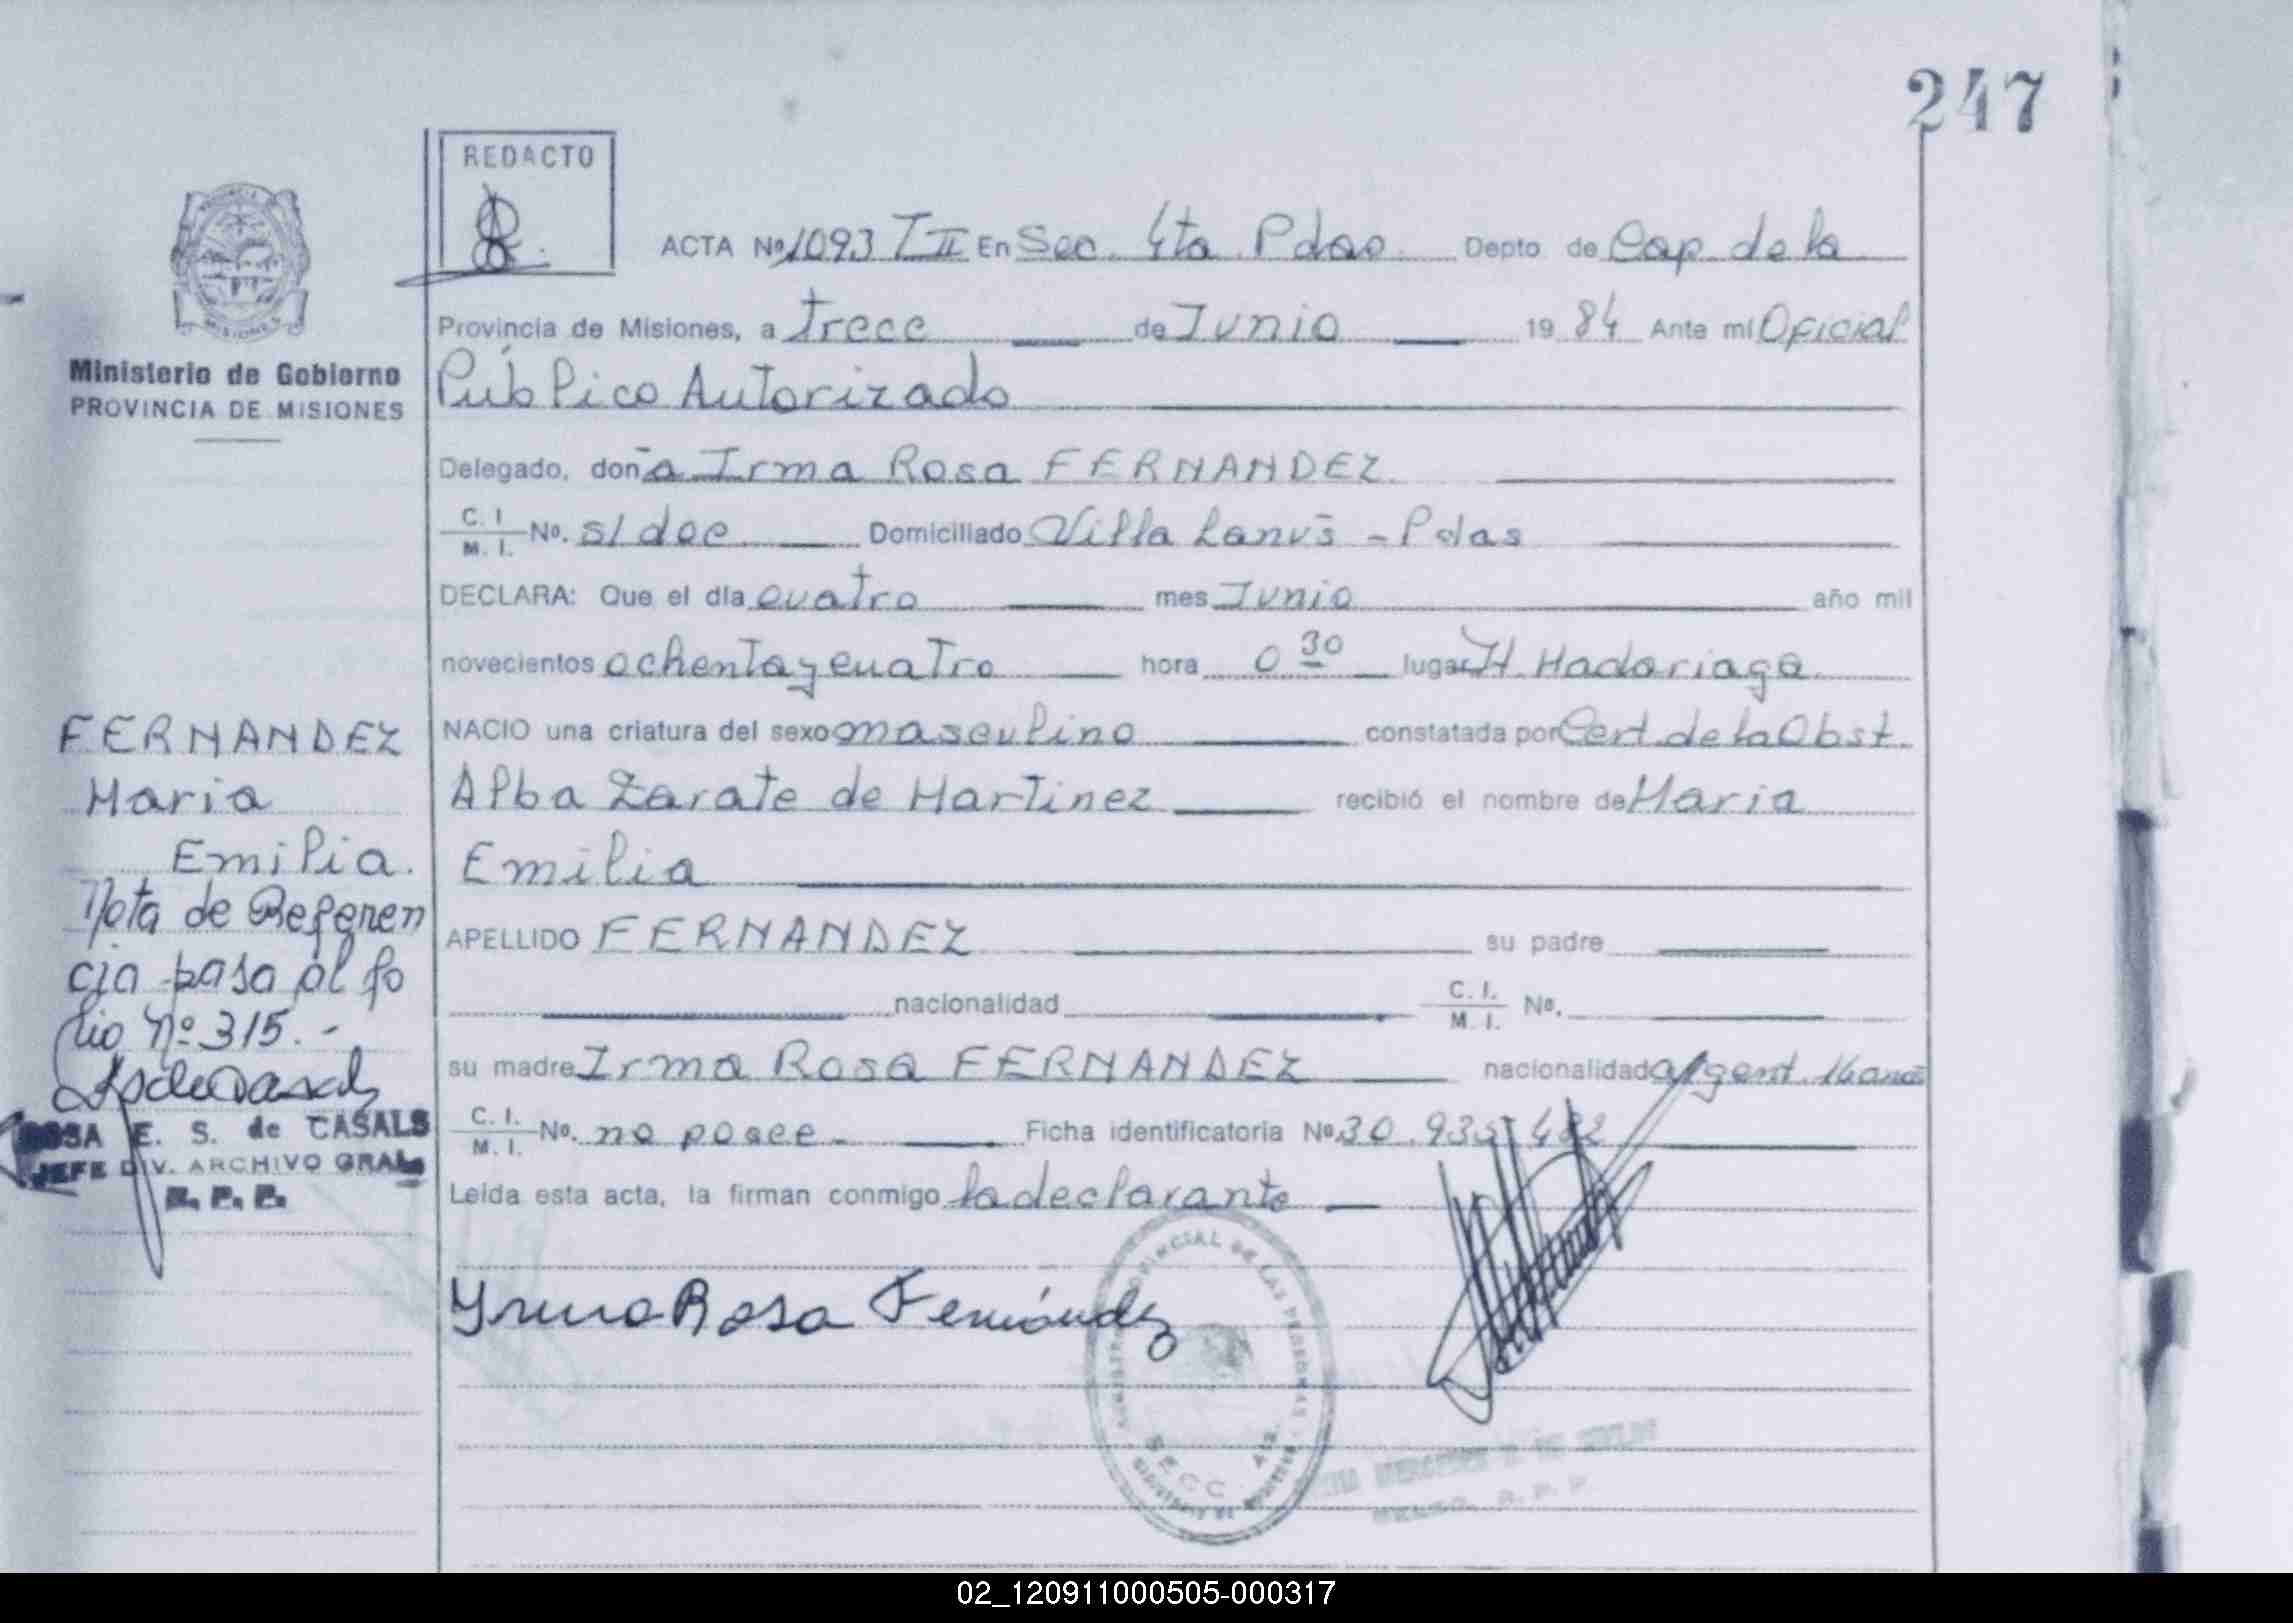 247
REDACTO
ACTA Nº 1093 T II En Sec. 4ta Pdas. Depto de Cap. de la
Provincia de Misiones, a trece de Junio 1984 Ante mí Oficial
Público Autorizado
Ministerio de Gobierno
PROVINCIA DE MISIONES
Delegado, doña Irma Rosa FERNANDEZ
C. I. M. I. No. s/doc Domiciliado Villa Lanús - Pdas
DECLARA: Que el día cuatro mes Junio año mil
novecientos ochenta y cuatro hora 0 30 lugar H. Madariaga
NACIO una criatura del sexo masculino constatada por Cert. de la Obst.
Alba Zarate de Martinez recibió el nombre de Maria
Emilia
APELLIDO FERNANDEZ su padre
nacionalidad C. I. M. I. No.
su madre Irma Rosa FERNANDEZ nacionalidad argent. 16 anõs
C. I. M. I. No. no posee. Ficha identificatoria Nº 30.935.482
Leída esta acta, la firman conmigo la declarante
Yrma Rosa Fernández
FERNANDEZ
Maria
Emilia.
Nota de Referen
cia pasa al fo
lio Nº 315.-
ROSA E. S. de CASALS
JEFE DIV. ARCHIVO GRAL.
R. P. P.
PROVINCIAL DE LAS PERSONAS
SECC. 4ta.
02_120911000505-000317